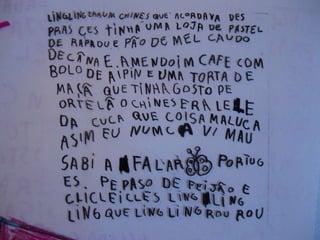 LINGLINGERAUM CHINES QUE ACORDAVA DES
PAAS CES TINHA UMA LOJA DE PASTEL
DE RAPADU E PÃO DE MEL CAUDO
DE CÂNA E. AMENDOIM CAFE COM
BOLO DE AIPIN E UMA TORTA DE
MAÇÃ QUE TINHA GOSTO DE
ORTELÃ O CHINES ERA LELE
DA CUCA QUE COISA MALUCA
ASIM EU NUMCA VI MAU
SABI A FALAR PORTUG
ES. PE PASO DE FEIJÃO E
CLICLEICLES LING LING
LING QUE LING LING ROU ROU